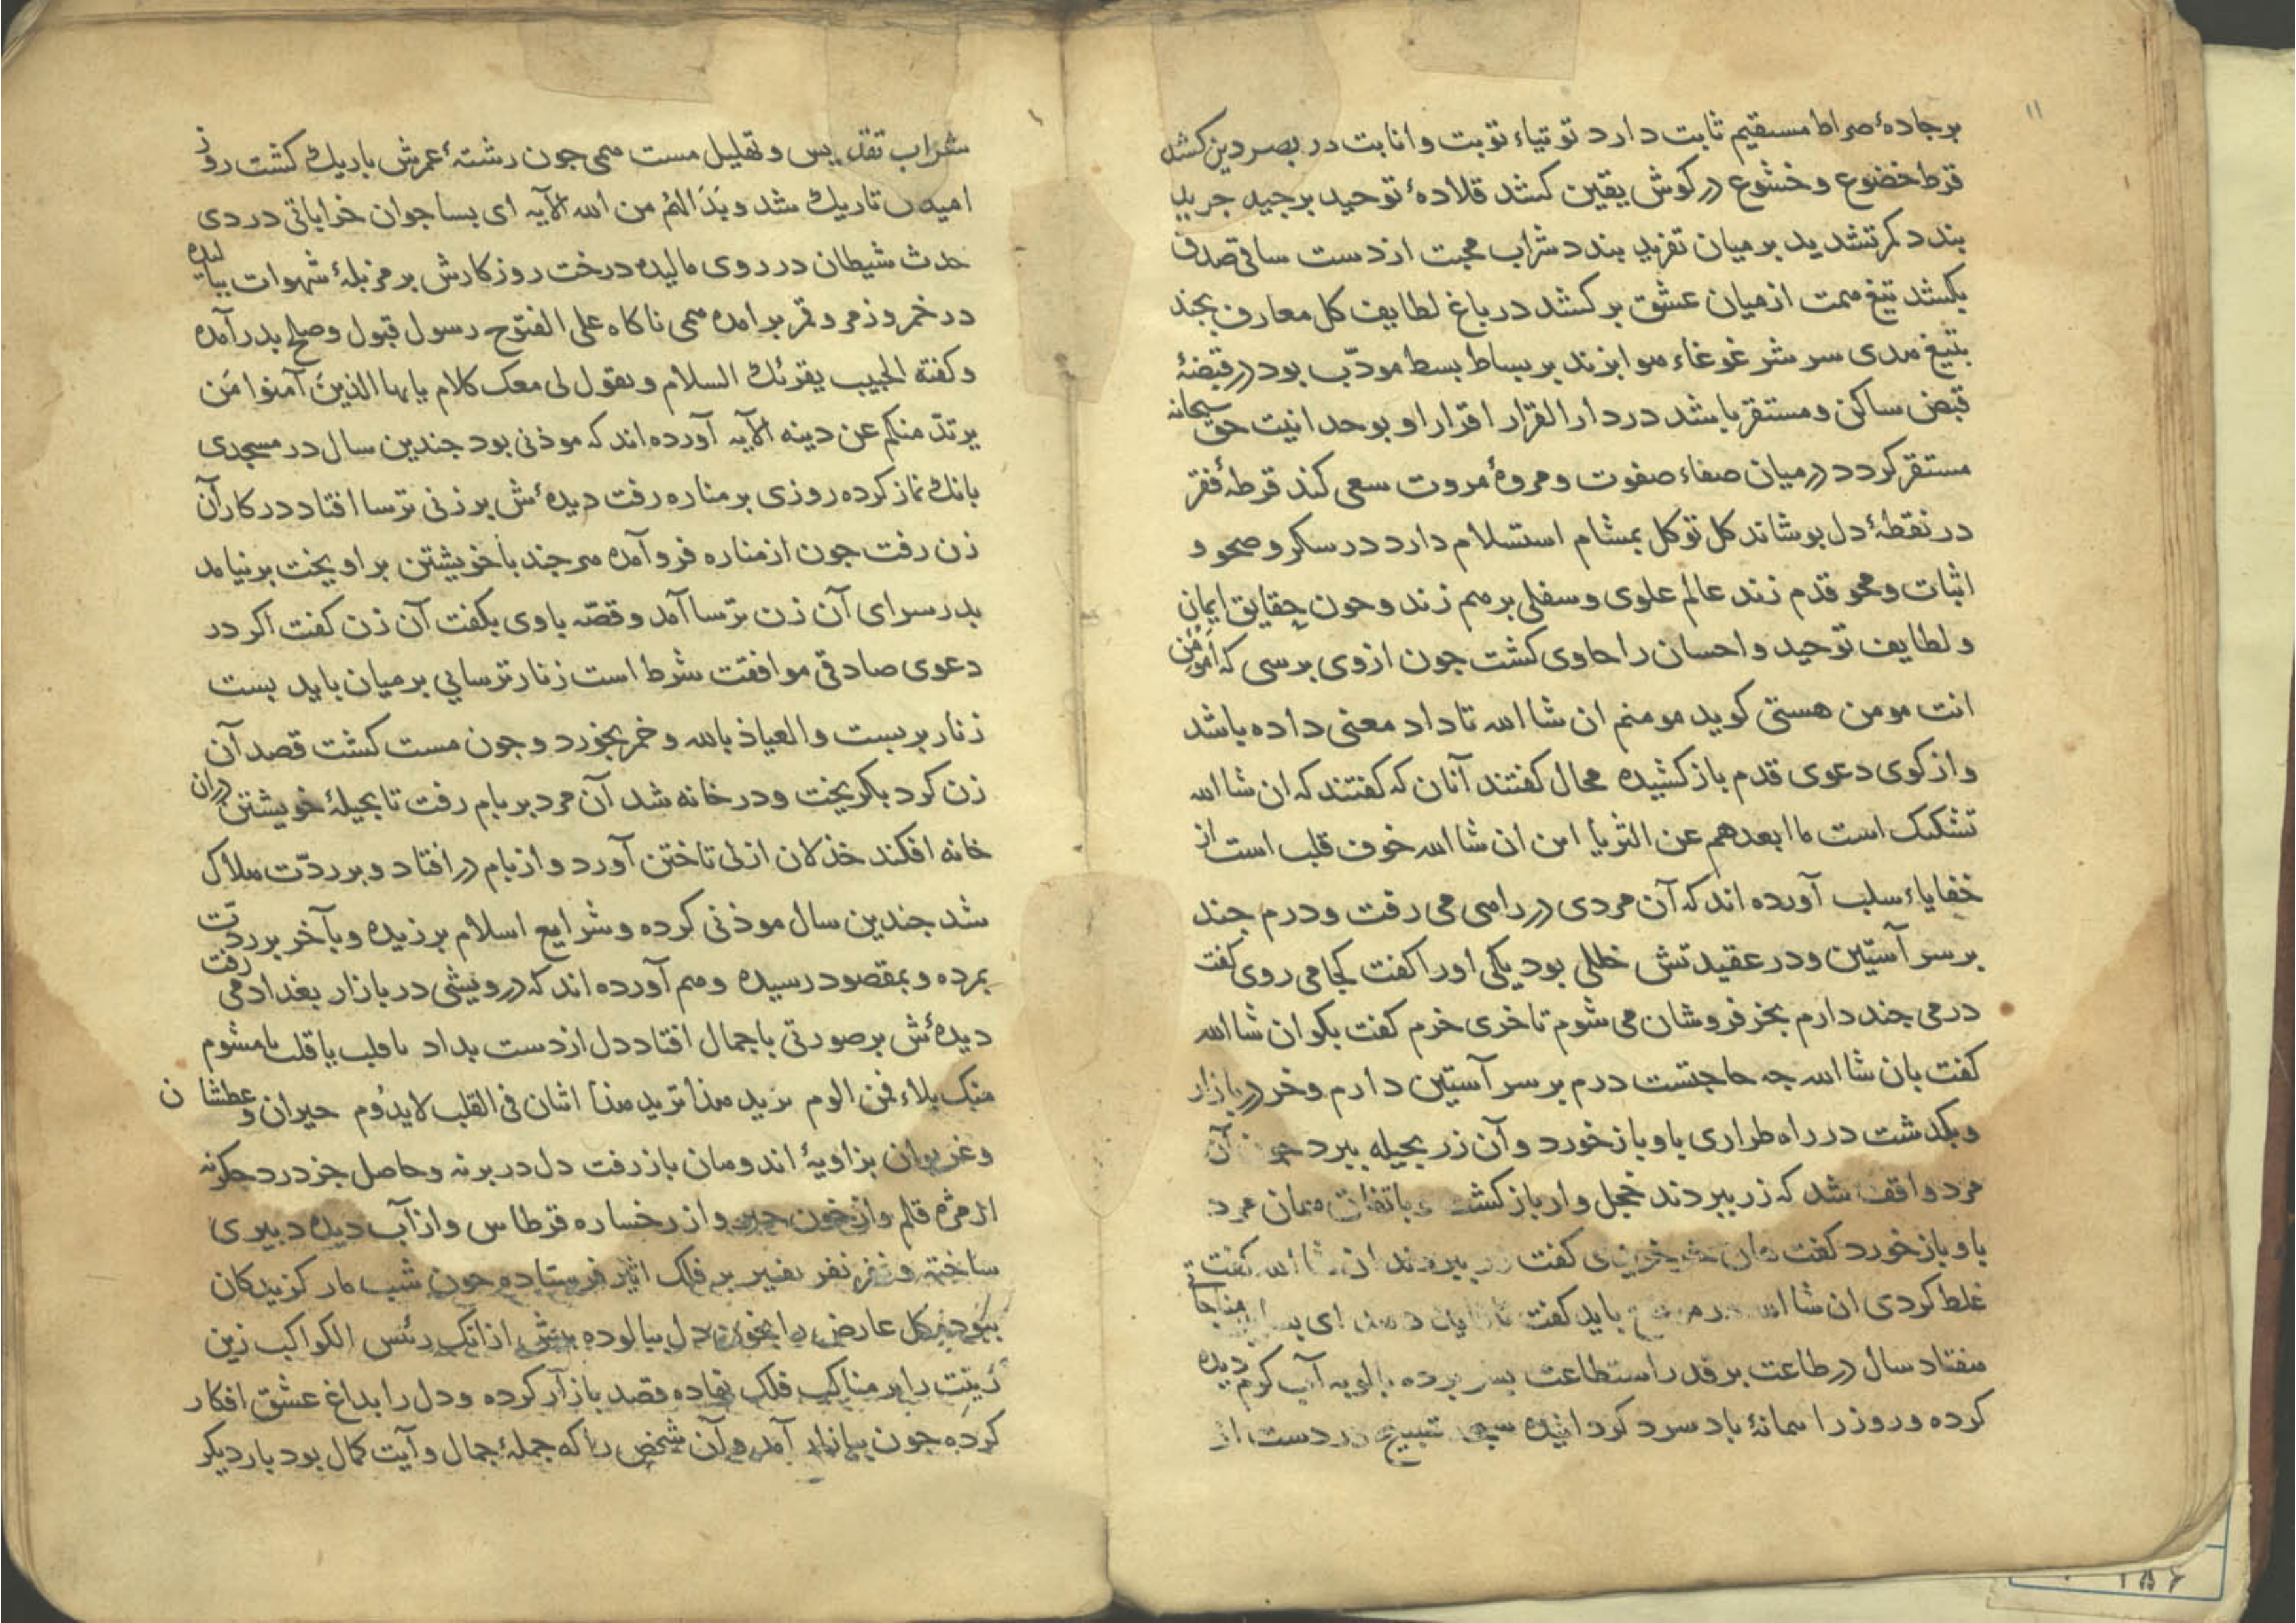 ۱۱
برجادهٔ صراط مستقیم ثابت دارد توتیاء توبت و انابت در بصر دین کشد
قرط خضوع و خشوع در کوش یقین کشد قلادهٔ توحید بر جید جرید
بندد کمر تشدید بر میان تفرید بندد شراب محبت از دست ساقی صدق
بکشد تیغ همت از میان عشق برکشد در باغ لطایف کل معارف بجند
بتیغ هدی سر شر غوغاء هوا بزند بر بساط بسط مودّب بود در قبضهٔ
قبض ساکن و مستقر باشد در دار القرار اقرار او بوحدانیت حق سبحانه
مستقر کردد در میان صفاء صفوت و مروهٔ مروت سعی کند قرطهٔ فقر
در نقطهٔ دل بوشاند کل توکل بمشام استسلام دارد در سکر و صحو و
اثبات و محو قدم زند عالم علوی و سفلی برهم زند و جون حقایق ایمان
و لطایف توحید و احسان را حاوی کشت جون ازوی برسی که امومن
انت مومن هستی کوید مومنم ان شا الله تا داد معنی داده باشد
و از کوی دعوی قدم باز کشیده محال کفتند آنان که کفتند که ان شا الله
تشکیک است ما ابعدهم عن الثریا این ان شا الله خوف قلب است از
خفایاء سلب آورده اند که آن مردی در راهی می رفت و درم جند
بر سر آستین و در عقیدتش خللی بود یکی اورا کفت کجا می روی کفت
درمی جند دارم بخر فروشان می شوم تا خری خرم کفت بکو ان شا الله
کفت بان شا الله جه حاجتست درم بر سر آستین دارم و خر در بازار
و بکذشت در راه طراری باو باز خورد و آن زر بحیله ببرد جون آن
مرد واقف شد که زر ببردند خجل وار باز کشت باتفاق همان مرد
باو باز خورد کفت هان خر خریدی کفت زر ببردند ان شا الله کفت
غلط کردی ان شا الله در موضع باید کفت تا ای بسا مناجاتی
هفتاد سال در طاعت بر قدر استطاعت بسر برده آب کرم دیده
کرده و روز را باد سرد کردانیده تسبیح در دست از
شراب تقدیس و تهلیل مست همی جون رشتهٔ عمرش باریک کشت روز
امیدش تاریک شد و بدا لهم من الله الآیه ای بسا جوان خراباتی دردی
حدث شیطان در روی مالیده درخت روزکارش بر مزبلهٔ شهوات بالیده
در خمر و زمر و قمر برآمده همی ناکاه علی الفتوح رسول قبول و صلح بدر آمده
و کفته الحبیب یقرئک السلام و یقول لی معک کلام یایها الذین آمنوا من
یرتدّ منکم عن دینه الآیه آورده اند که موذنی بود جندین سال در مسجدی
بانک نماز کرده روزی بر مناره رفت دیدهٔش بر زنی ترسا افتاد در کار آن
زن رفت جون از مناره فرو آمده هر جند با خویشتن بر اویخت برنیامد
بدر سرای آن زن ترسا آمد و قصّه باوی بکفت آن زن کفت اکر در
دعوی صادقی موافقت شرط است زنار ترسایی بر میان باید بست
زنار بر بست و العیاذ بالله و خمر بخورد و جون مست کشت قصد آن
زن کرد بکریخت و در خانه شد آن مرد بر بام رفت تا بحیلهٔ خویشتن دران
خانه افکند خذلان ازلی تاختن آورد و از بام در افتاد و بر ردّت هلاک
شد جندین سال موذنی کرده و شرایع اسلام برزیده و بآخر بر ردّت
بمرده و بمقصود رسیده و هم آورده اند که درویشی در بازار بغداد می رفت
دیدهٔش بر صورتی با جمال افتاد دل از دست بداد یا قلب یا قلب یا مشوم
منک بلاء فمن الوم ترید هذا ترید هذا اثنان فی القلب لا یدوم حیران و عطشان
و غریوان بزاویهٔ اندوهان باز رفت دل در بر نه و حاصل جز درد جکر نه
از مژه قلم و از خون حبر و از رخساره قرطاس و از آب دیده دبیری
ساخته و نفر نفیر بر فلک اثیر فرستاده جون شب مار کزیدکان
ببود کل عارض را بخون دل بیالوده بیش از انک رئیس الکواکب زین
زینت را بر مناکب فلک نهاده قصد بازار کرده و دل را بداغ عشق افکار
کرده جون ببازار آمد و آن شخص را که جملهٔ جمال و آیت کمال بود بار دیکر